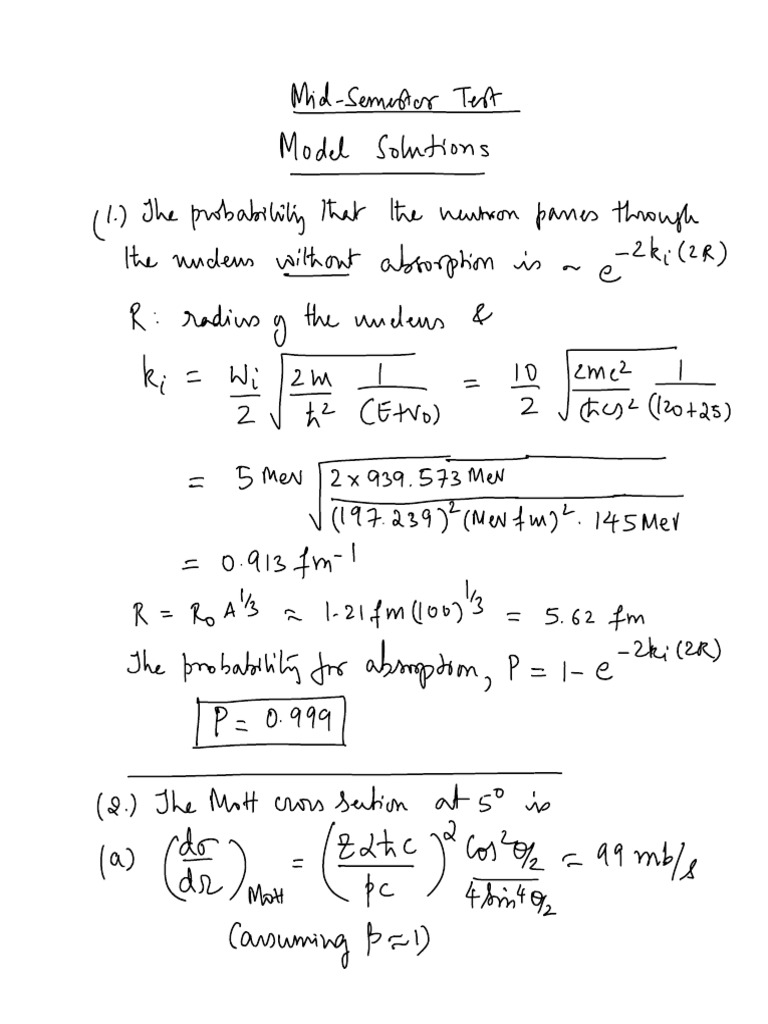 Mid-Semester Test
Model Solutions
(1.) The probability that the neutron passes through
the nucleus without absorption is ~ e^{-2k_i(2R)}
R: radius of the nucleus &
k_i = W_i/2 √(2m/ħ² 1/(E+V_0)) = 10/2 √(2mc²/(ħc)² 1/(120+25))
= 5 MeV √(2 × 939.573 MeV/((197.239)² (MeV fm)² . 145 MeV))
= 0.913 fm⁻¹
R = R_0 A^{1/3} ≈ 1.21 fm (100)^{1/3} = 5.62 fm
The probability for absorption, P = 1 - e^{-2k_i(2R)}
P = 0.999
(2.) The Mott cross section at 5° is
(a) (dσ/dΩ)_Mott = (Zαħc/pc)² cos²θ/2 / 4 sin⁴θ/2 = 99 mb/s
(assuming β ≈ 1)